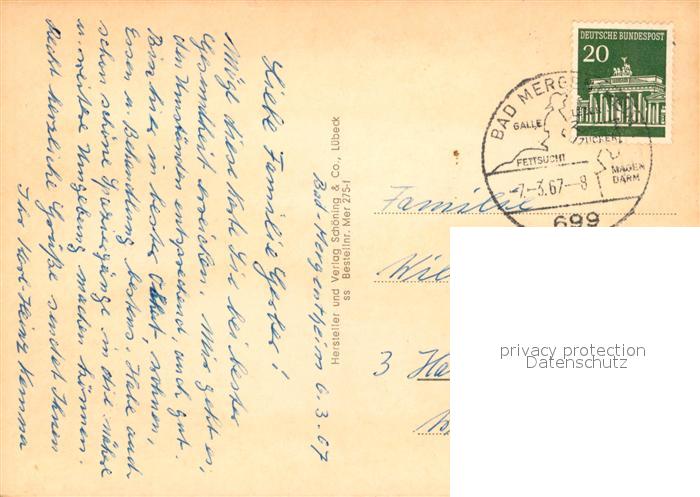 Bad-Mergentheim 6.3.67
Liebe Familie Gerber!
Möge diese Karte Sie bei bester
Gesundheit erreichen. Mir geht es,
den Umständen entsprechend, auch gut.
Bin hier in bester Obhut, wohnen,
Essen u. Behandlung bestens. Habe auch
schon schöne Spaziergänge in die nähere
u. weitere Umgebung machen können.
Recht herzliche Grüße sendet Ihnen
Ihr Karl Heinz
Hersteller und Verlag Schöning & Co., Lübeck
ss Bestellnr. Mer 275-f
DEUTSCHE BUNDESPOST
20
BAD MERGE
GALLE
ZUCKER
FETTSUCHT
MAGEN
DARM
7.-3.67-8
699
Familie
Wil
3 Ha
privacy protection
Datenschutz